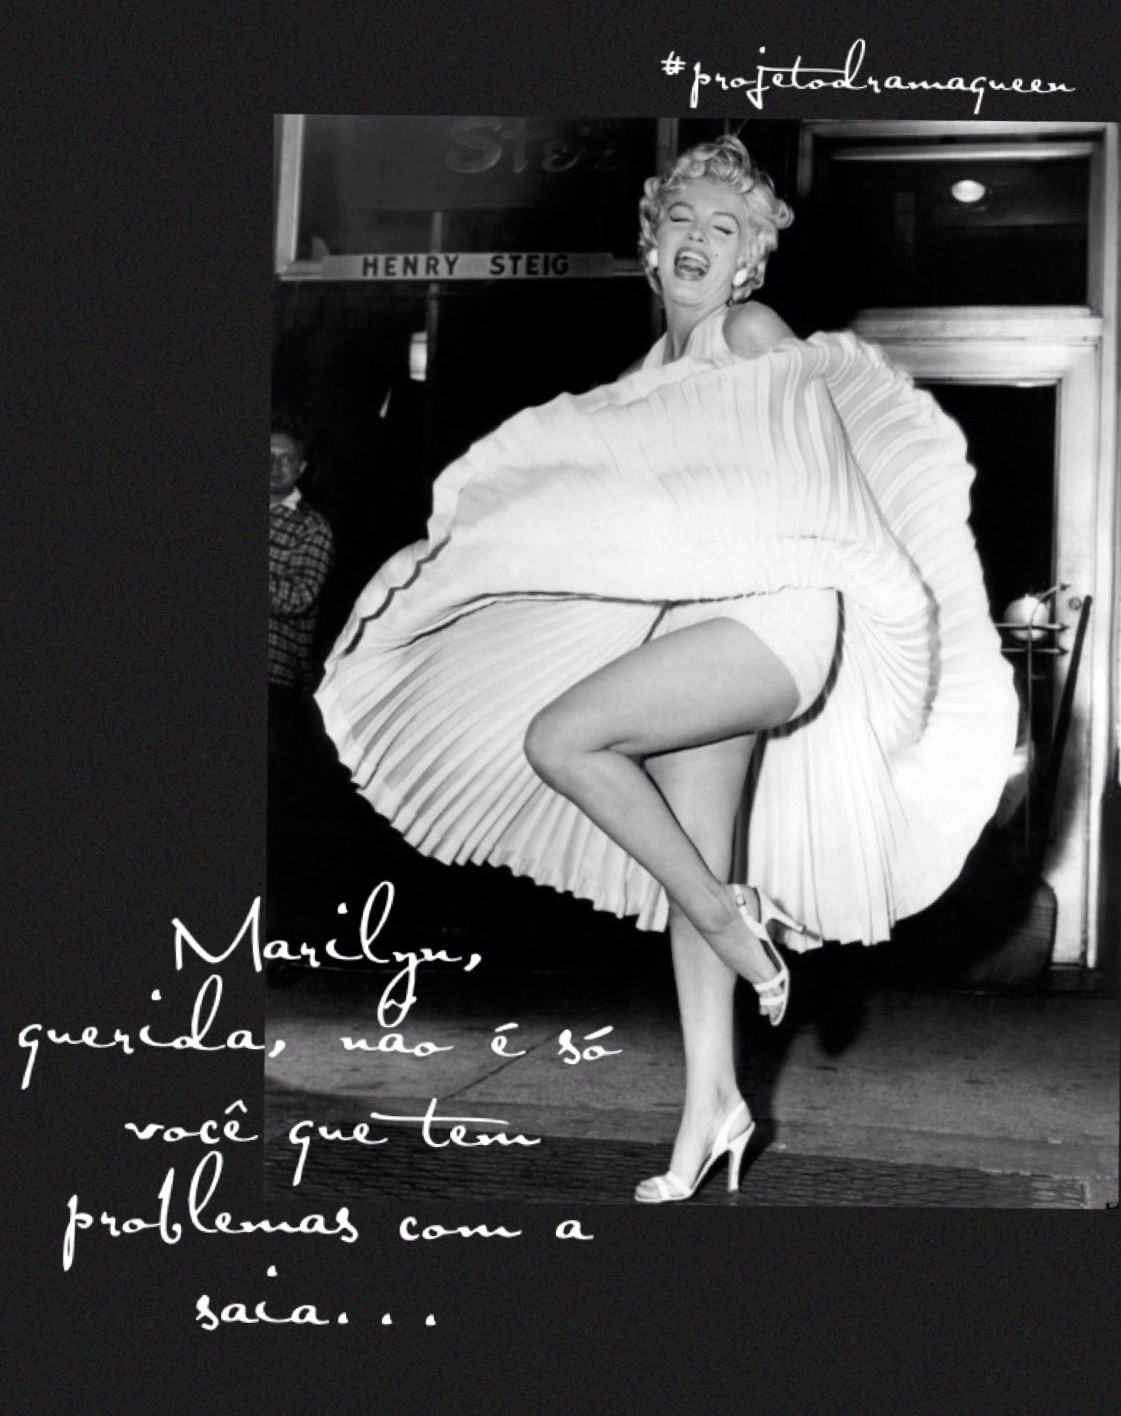 #projetodramaqueen
Stei
HENRY STEIG
Marilyn,
querida, não é só
você que tem
problemas com a
saia...